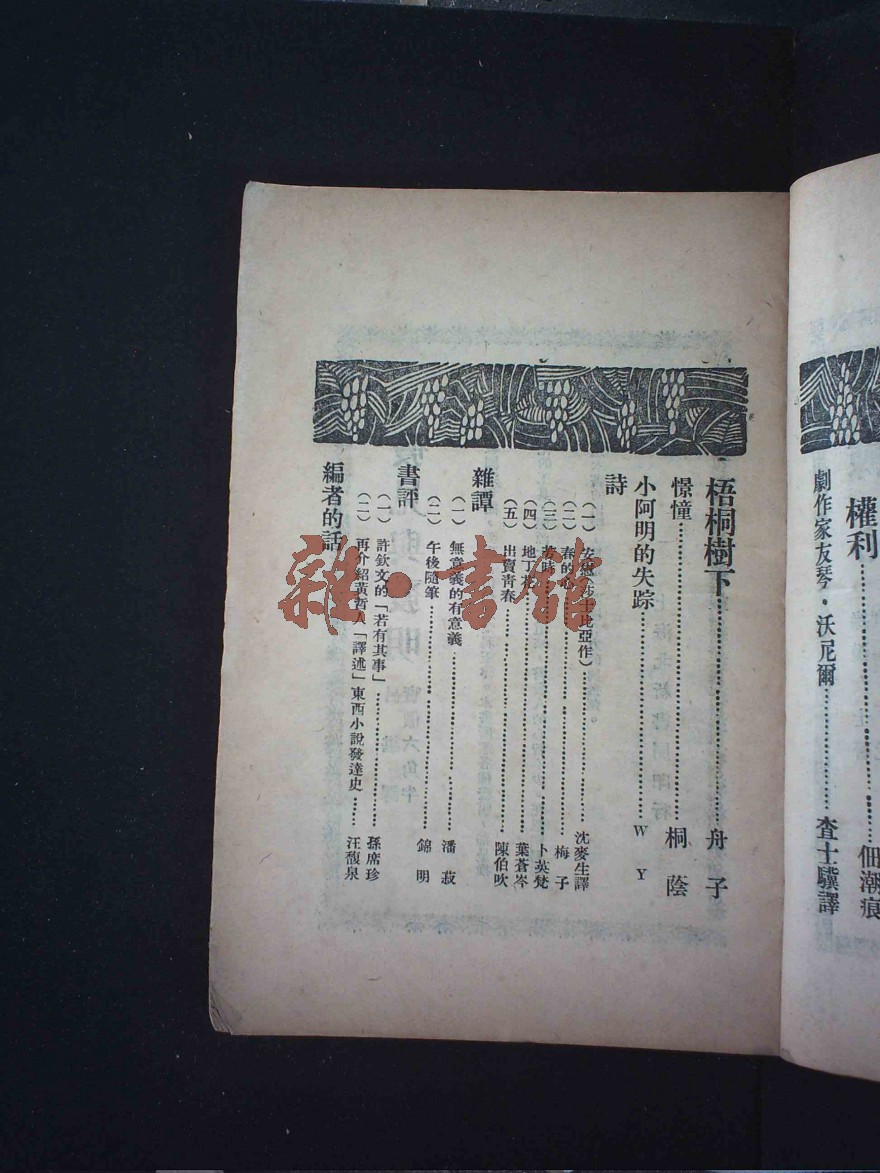 權利……佃潮痕
劇作家友琴·沃尼爾……查士驥譯
梧桐樹下……舟子
憬憧……桐蔭
小阿明的失踪……W Y
詩
(一) 安慰(莎士比亞作)……沈麥生譯
(二) 春的心……梅子
(三) 苦時……卜英梵
(四) 地丁花……葉蒼岑
(五) 出賣青春……陳伯吹
雜譚
(一) 無意義的有意義……潘菽
(二) 午後隨筆……錦明
書評
(一) 許欽文的「若有其事」……孫席珍
(二) 再介紹黃哲人「譯述」東西小說發達史……汪馥泉
編者的話
雜·書館